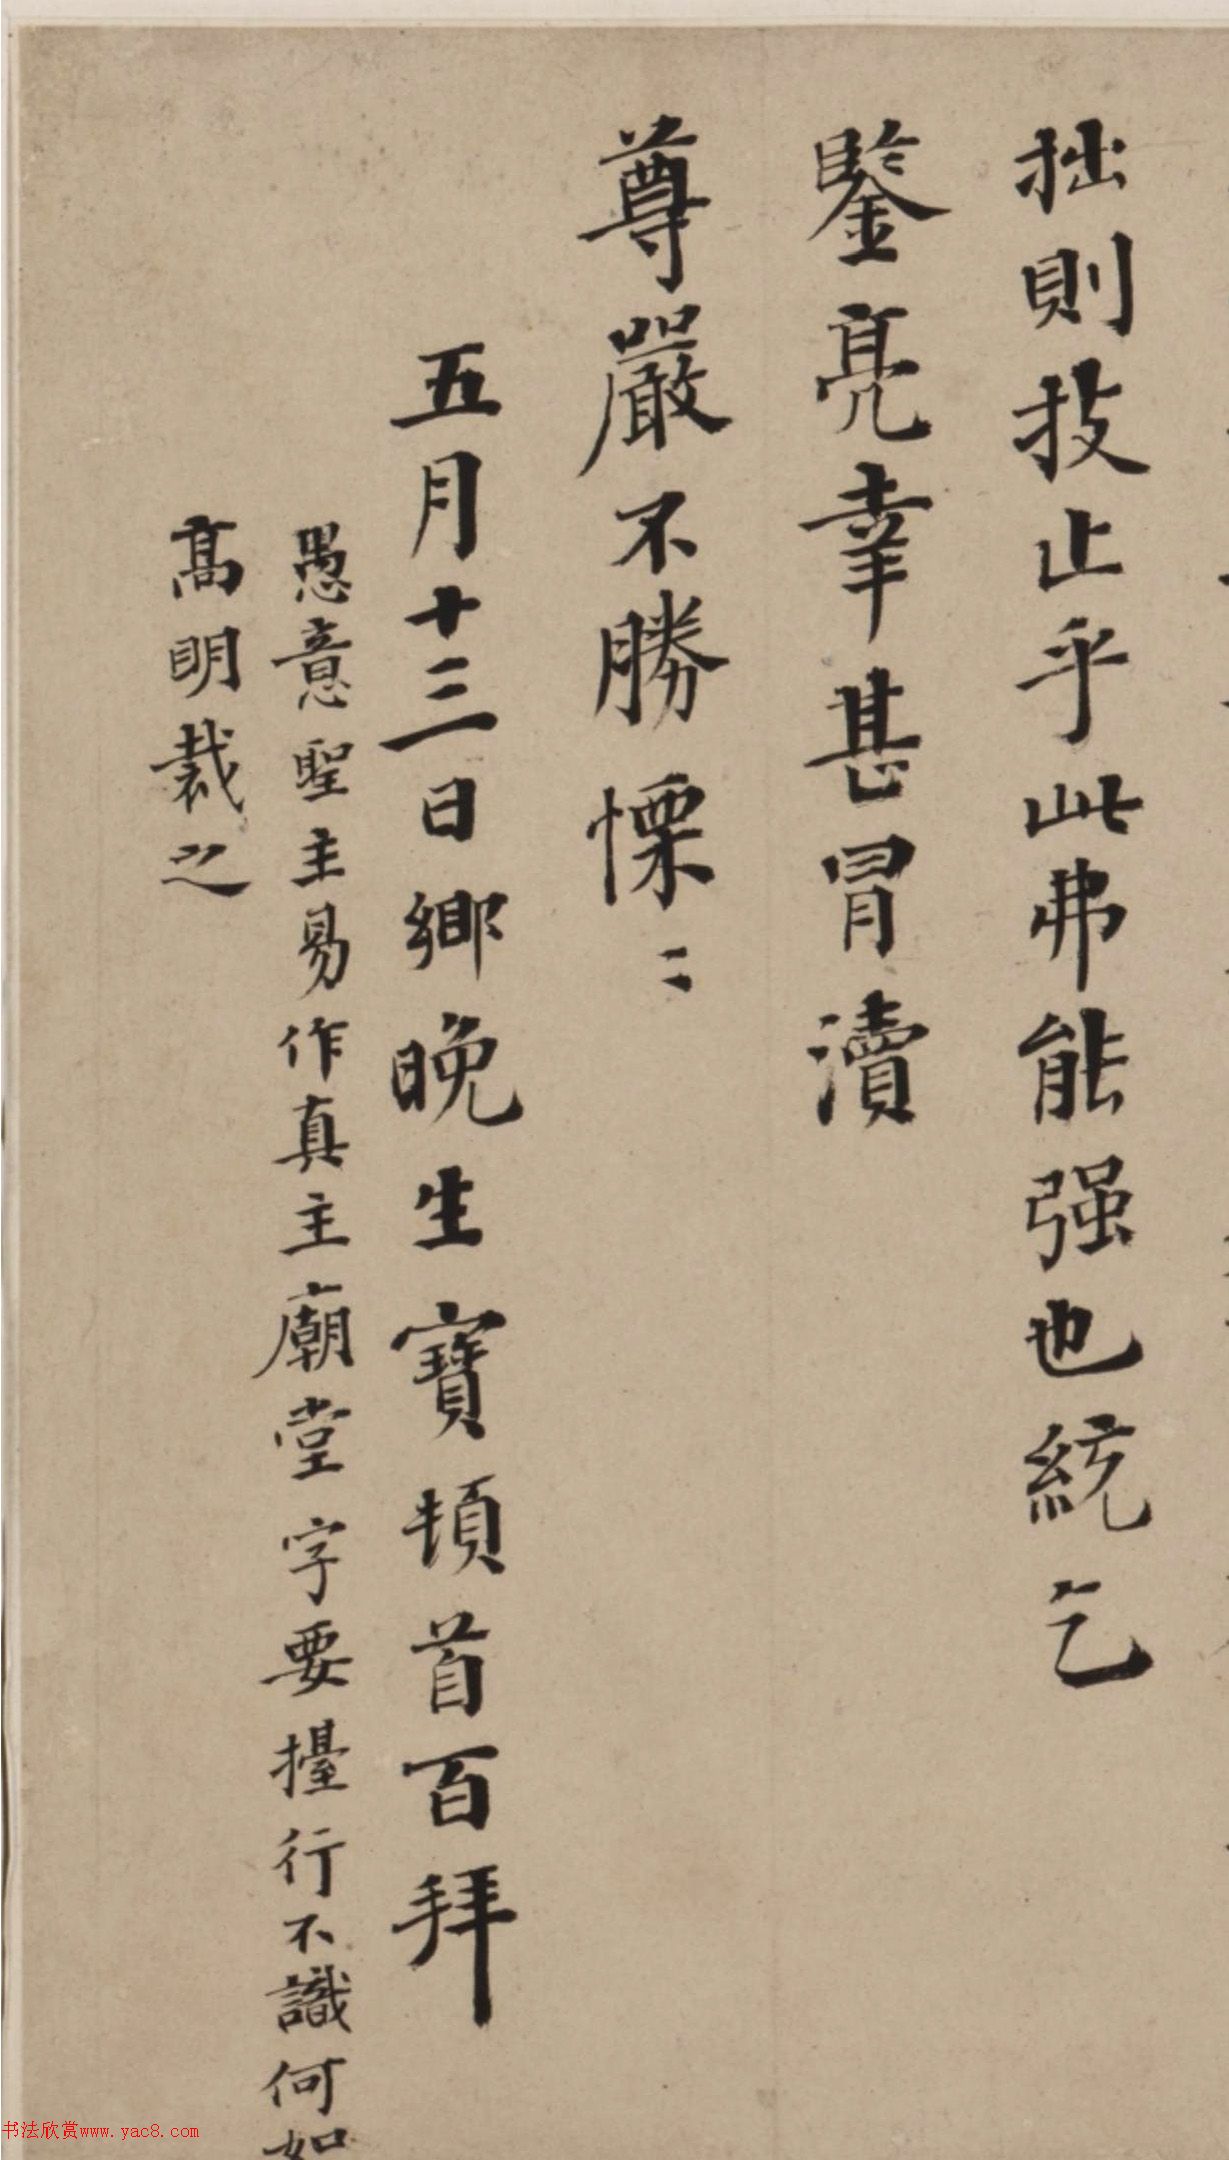 拙則技止乎此弗能强也統乞
鑒亮幸甚冐瀆
尊嚴不勝慄〻
五月十三日鄉晚生寶頓首百拜
愚意聖主易作真主廟堂字要擡行不識何如
髙明裁之
书法欣赏www.yac8.com